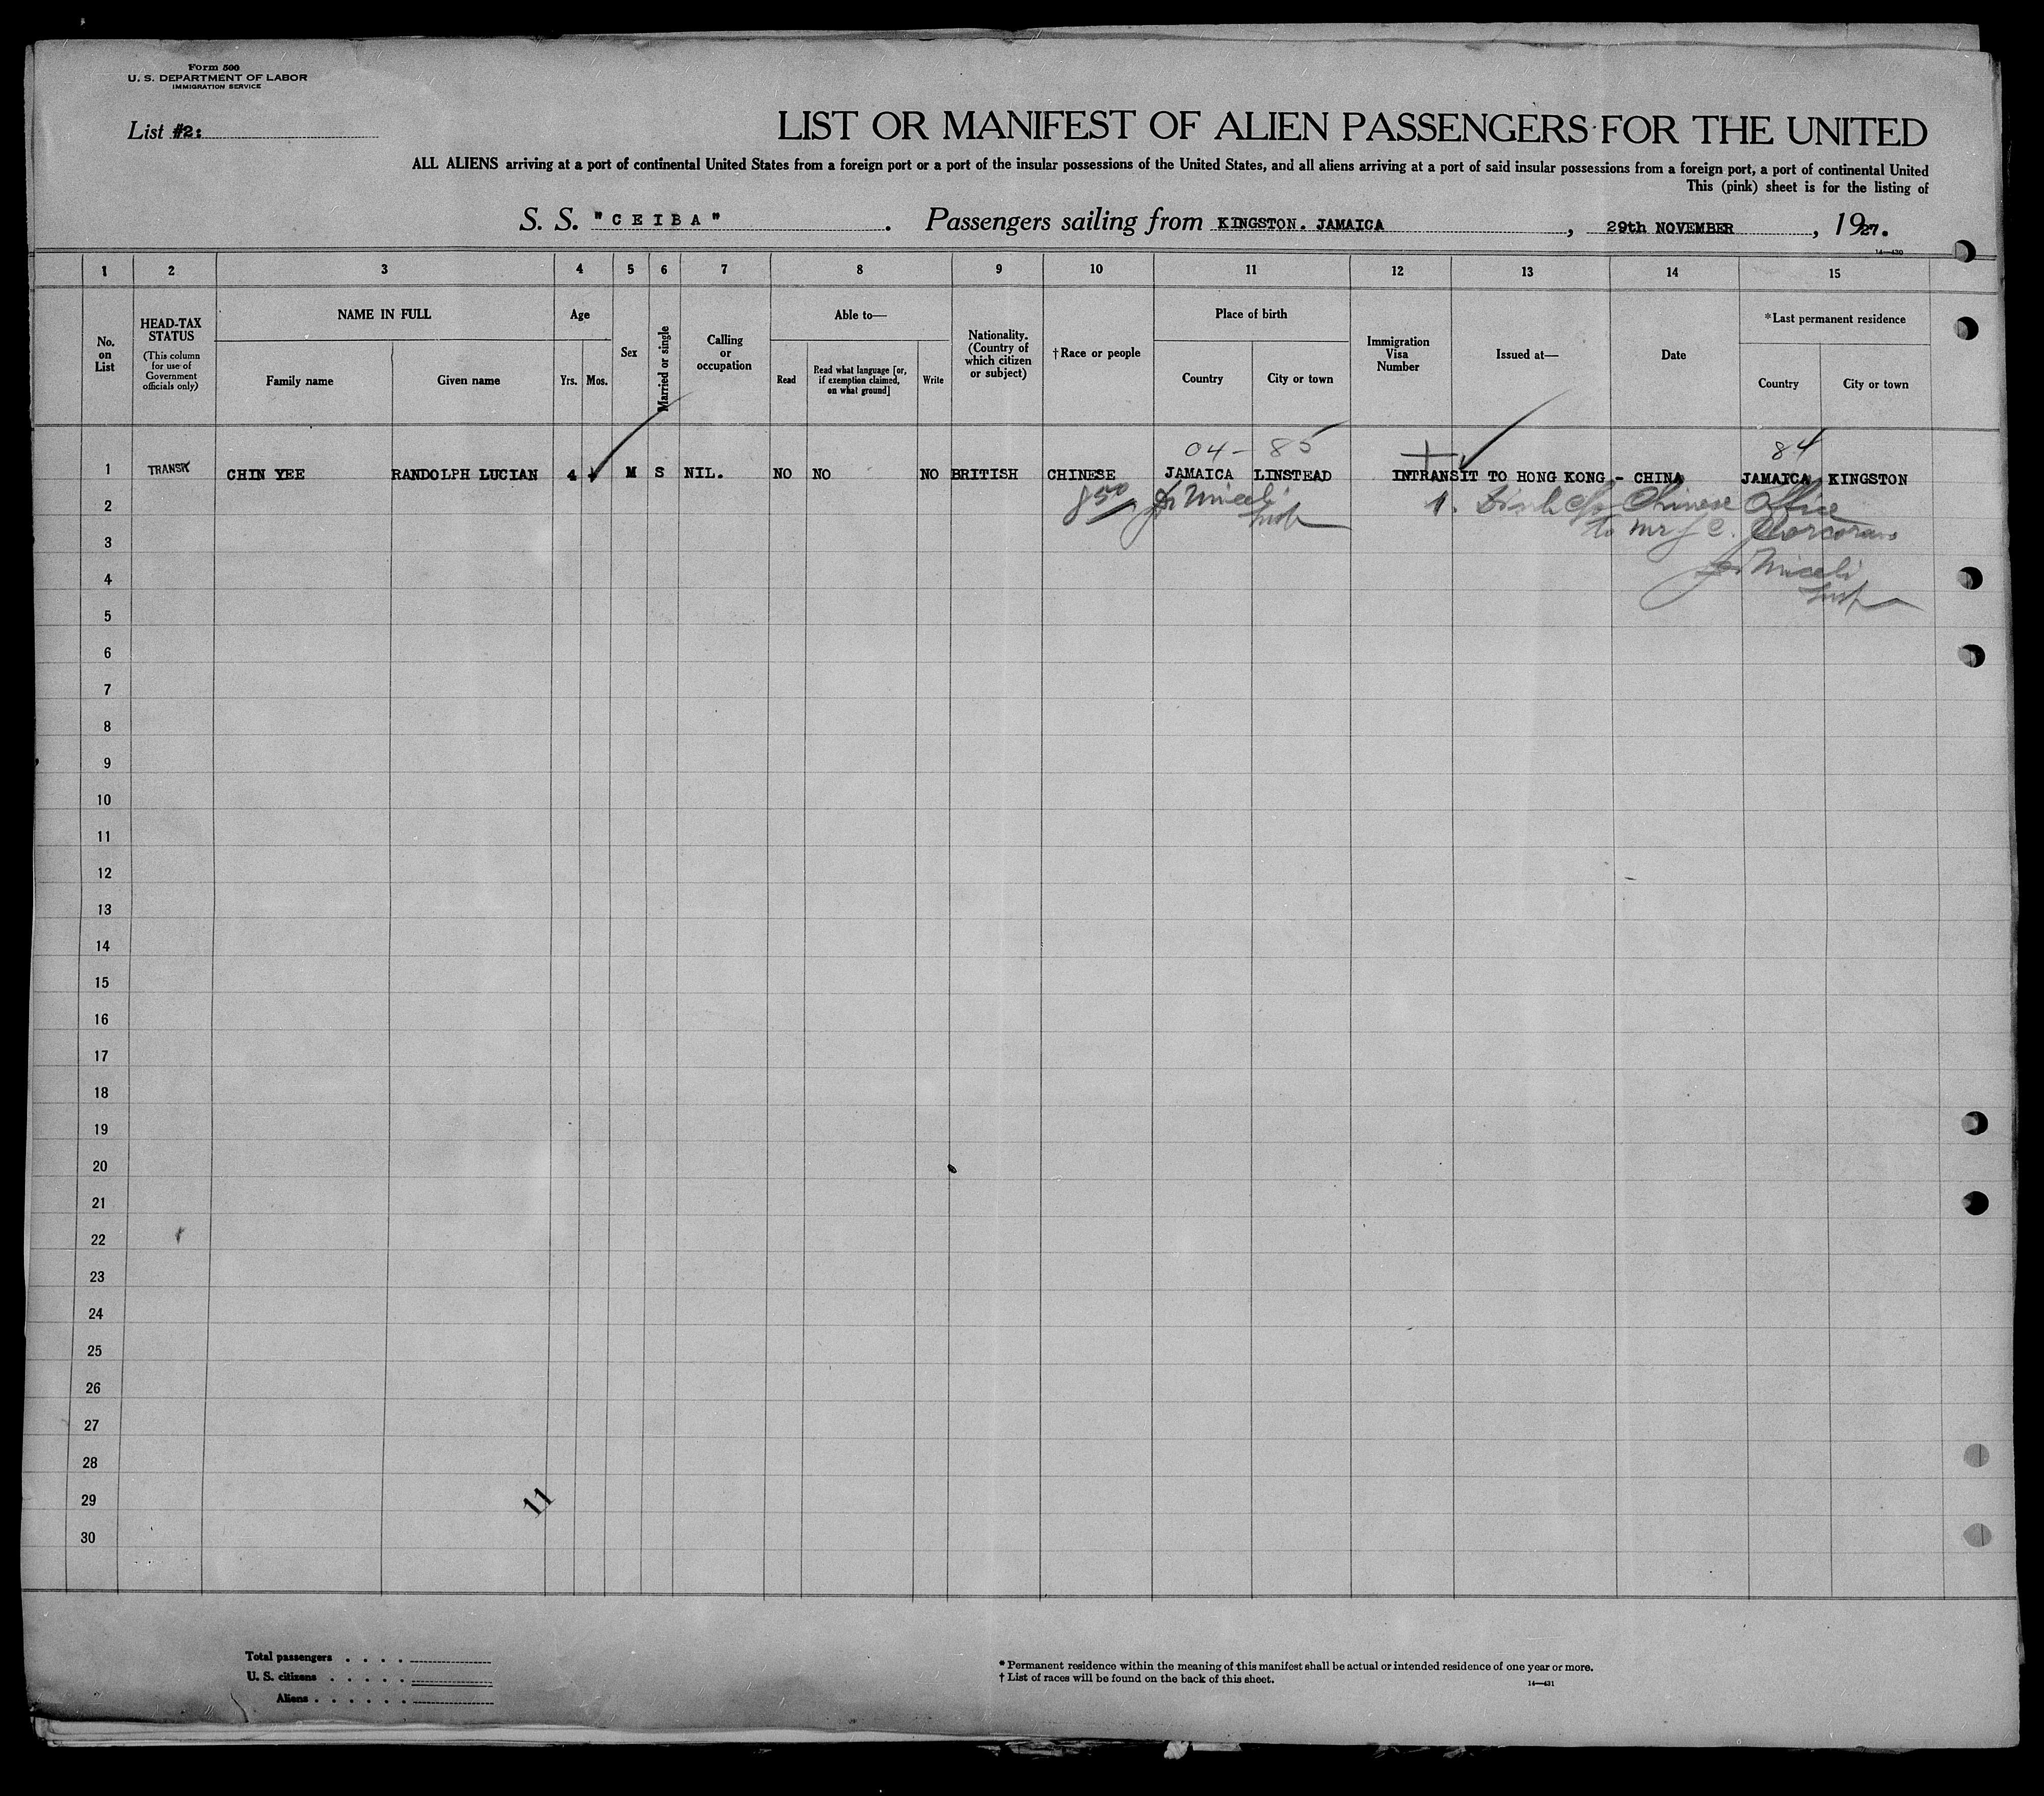 Form 500
U. S. DEPARTMENT OF LABOR
IMMIGRATION SERVICE
List #2:
LIST OR MANIFEST OF ALIEN PASSENGERS FOR THE UNITED
ALL ALIENS arriving at a port of continental United States from a foreign port or a port of the insular possessions of the United States, and all aliens arriving at a port of said insular possessions from a foreign port, a port of continental United
This (pink) sheet is for the listing of
S. S. "CEIBA". Passengers sailing from KINGSTON. JAMAICA, 29th NOVEMBER, 1927.
14—430
1 2 3 4 5 6 7 8 9 10 11 12 13 14 15
No. on List
HEAD-TAX STATUS
(This column for use of Government officials only)
NAME IN FULL
Family name Given name
Age
Yrs. Mos.
Sex
Married or single
Calling or occupation
Able to—
Read
Read what language [or, if exemption claimed, on what ground]
Write
Nationality. (Country of which citizen or subject)
†Race or people
Place of birth
Country City or town
Immigration Visa Number
Issued at—
Date
*Last permanent residence
Country City or town
04 - 85 84
1 TRANSIT CHIN YEE RANDOLPH LUCIAN 4 M S NIL. NO NO NO BRITISH CHINESE JAMAICA LINSTEAD INTRANSIT TO HONG KONG - CHINA JAMAICA KINGSTON
2 850 Miceli Insp 1. Disch c/o Chinese Office
3 to Mr J C. Corcoran
4 Miceli
5 Insp
6
7
8
9
10
11
12
13
14
15
16
17
18
19
20
21
22
23
24
25
26
27
28
29
30
11
Total passengers
U. S. citizens
Aliens
* Permanent residence within the meaning of this manifest shall be actual or intended residence of one year or more.
† List of races will be found on the back of this sheet.
14—431